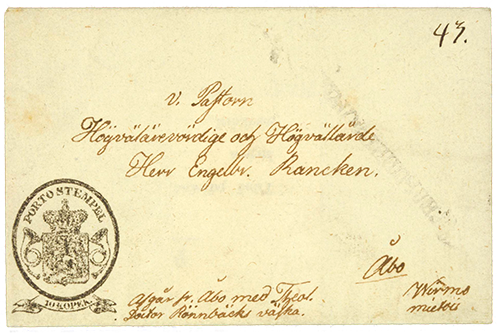 43.
v. Pastorn
Högvälärevördige och Högvällärde
Herr Engelbr. Rancken.
PORTO STEMPEL
10 KOPEK.
Åbo
afgår fr. Åbo med Theol.
Doctor Rönnbäcks väska.